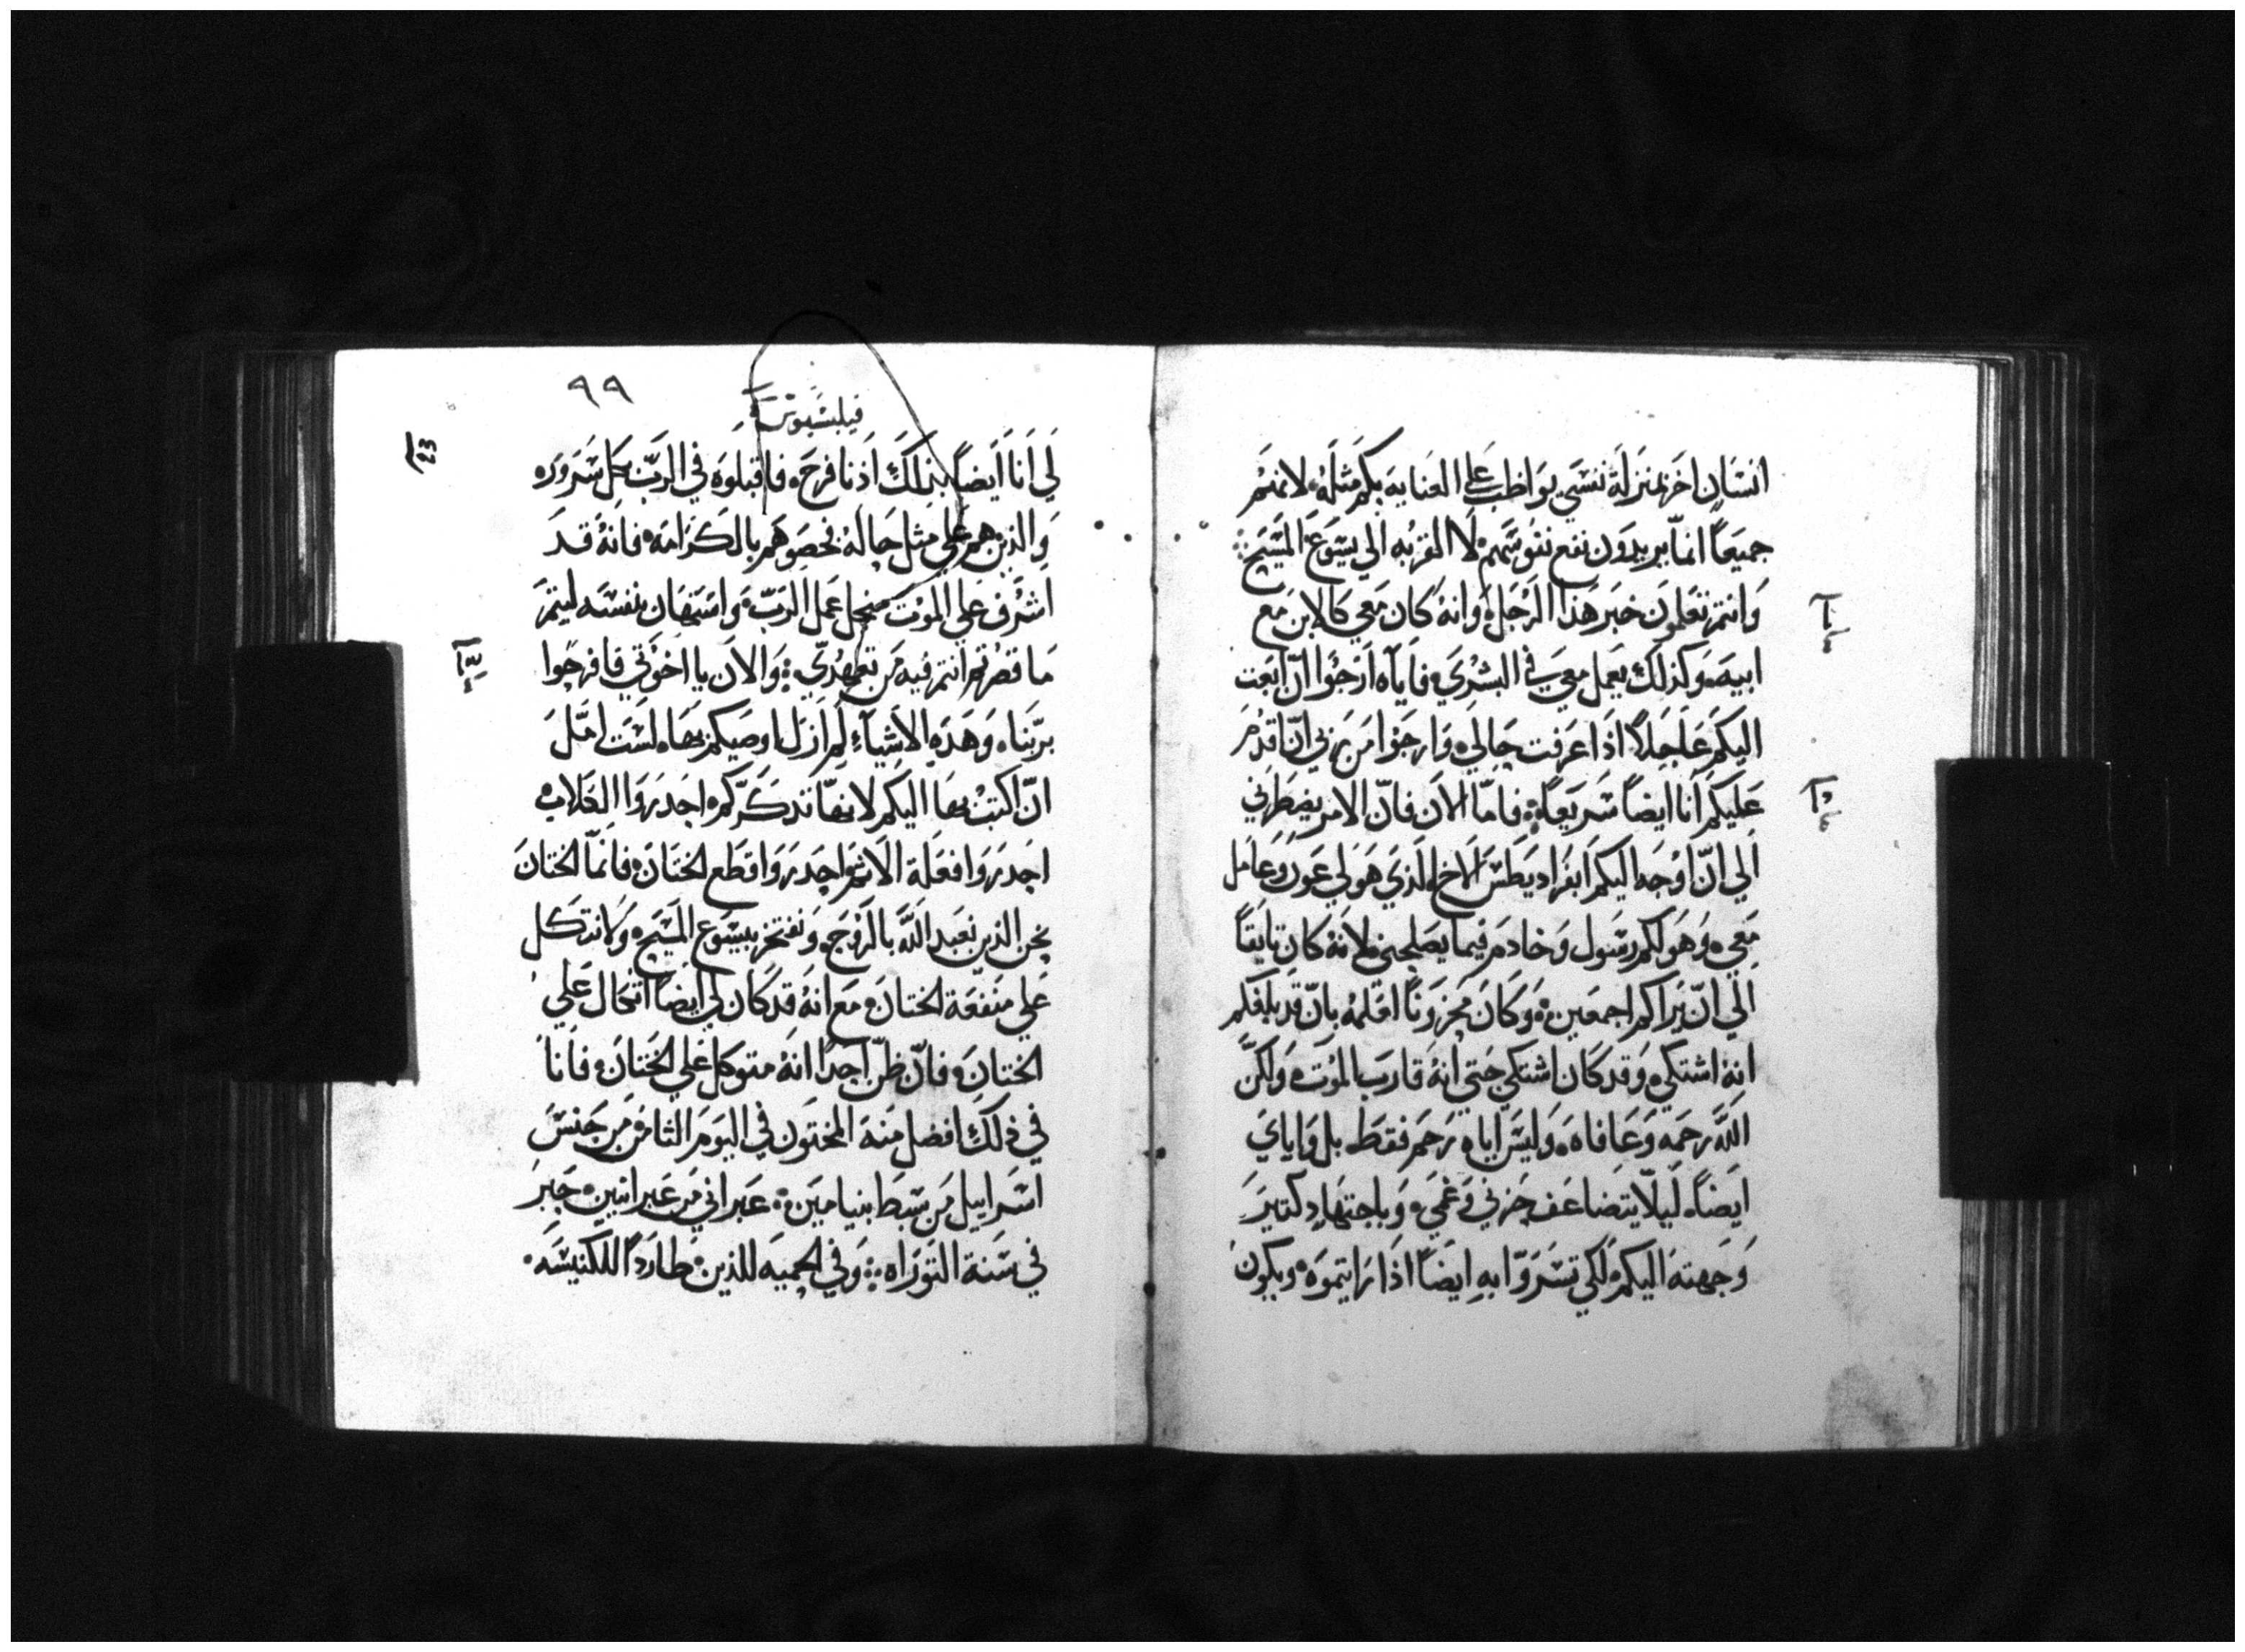 انسان اخر بمنزلة نفسي يواظب علي العنايه بكم مثله لانهم
جميعاً انما يريدون نفع نفوسهم لا القربه الي يسوع المسيح
وانتم تعلمون خبر هذا الرجل وانه كان معي كالابن مع
ابيه وكذلك يعمل معي في البشري فاياه ارجوا ان ابعت
اليكم عاجلاً اذا عرفت حالي وارجوا من ربي ان اقدم
عليكم انا ايضاً سريعاً فاما الان فان الامر يضطرني
الي ان اوجه اليكم ابفراديطس الاخ الذي هو لي عون وعامل
معي وهو لكم رسول وخادم فيما يصلحني لانه كان تايقاً
الي ان يراكم اجمعين وكان محزوناً لعلمه بان قد بلغكم
انه اشتكي وقد كان اشتكي حتي انه قارب الموت ولكن
الله رحمه وعافاه وليس اياه رحم فقط بل واياي
ايضاً ليلا يتضاعف حزني وغمي وباجتهاد كتير
وجهته اليكم لكي تسروا به ايضاً اذا رايتموه ويكون
٩٩
فيلبسيوس
لي انا ايضاً بذلك اذنا فرح فاقبلوه في الرب بكل سرور
والذين هم علي مثل حاله فخصوهم بالكرامه فانه قد
اشرف علي الموت من اجل عمل الرب واستهان بنفسه ليتم
ما قصرتم انتم فيه من تعهدي والان يا اخوتي فافرحوا
بربنا وهذه الاشياء لم ازل اوصيكم بها لست امل
ان اكتب بها اليكم لانها تذكركم احدروا الكلاب
احدروا فعلة الاثم واحدروا قطع الختان فانما الختان
نحن الذين نعبد الله بالروح ونفتخر بيسوع المسيح ولا نتكل
علي منفعة الختان مع انه قد كان لي ايضاً اتكال علي
الختان فان ظن احداً انه متوكل علي الختان فانا
في ذلك افضل منه المختون في اليوم الثامن من جنس
اسراييل من سبط بنيامين عبراني من عبرانيين حبر
في سنة التوراه وفي الحميه للدين طارداً للكنيسه